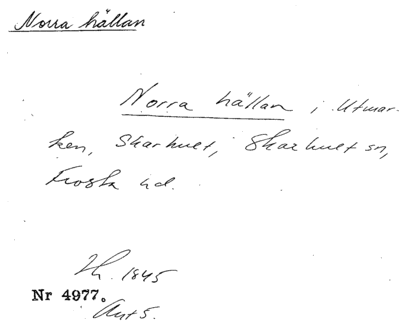 Norra hällan
Norra hällan i Utmar-
ken, Skarhult, Skarhult sn,
Frosta hd.
1845
Nr 4977.
Akt 5.